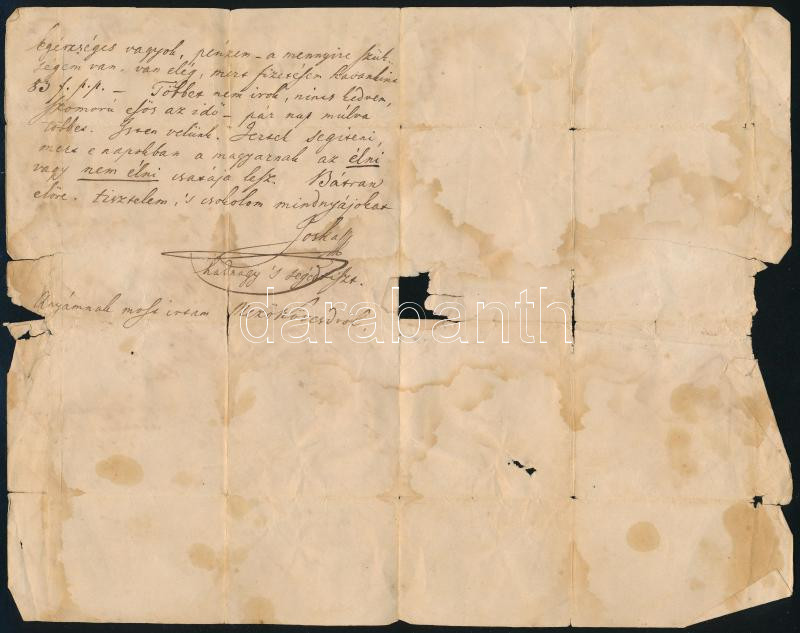 egésséges vagyok, pénzem – a mennyire szük
ségem van – van elég, mert fizetésem havonkint
83 f. p.p. – Többet nem irok, nincs kedvem,
Szomorú esős az idő – pár nap múlva
többet. Isten velünk. Jertek segíteni,
mert e napokban a magyarnak az élni
vagy nem élni csatája lesz. Bátran
előre. tisztelem 's csokolom mindnyájokat
Joska
hadnagy 's segédtiszt.
Anyámnak most irtam Mezőkövesdről
darabanth